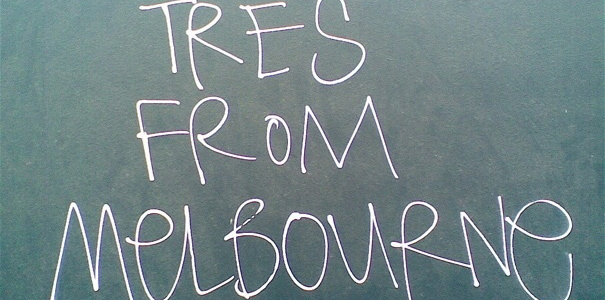 TRES
FROM
MeLBOURNe